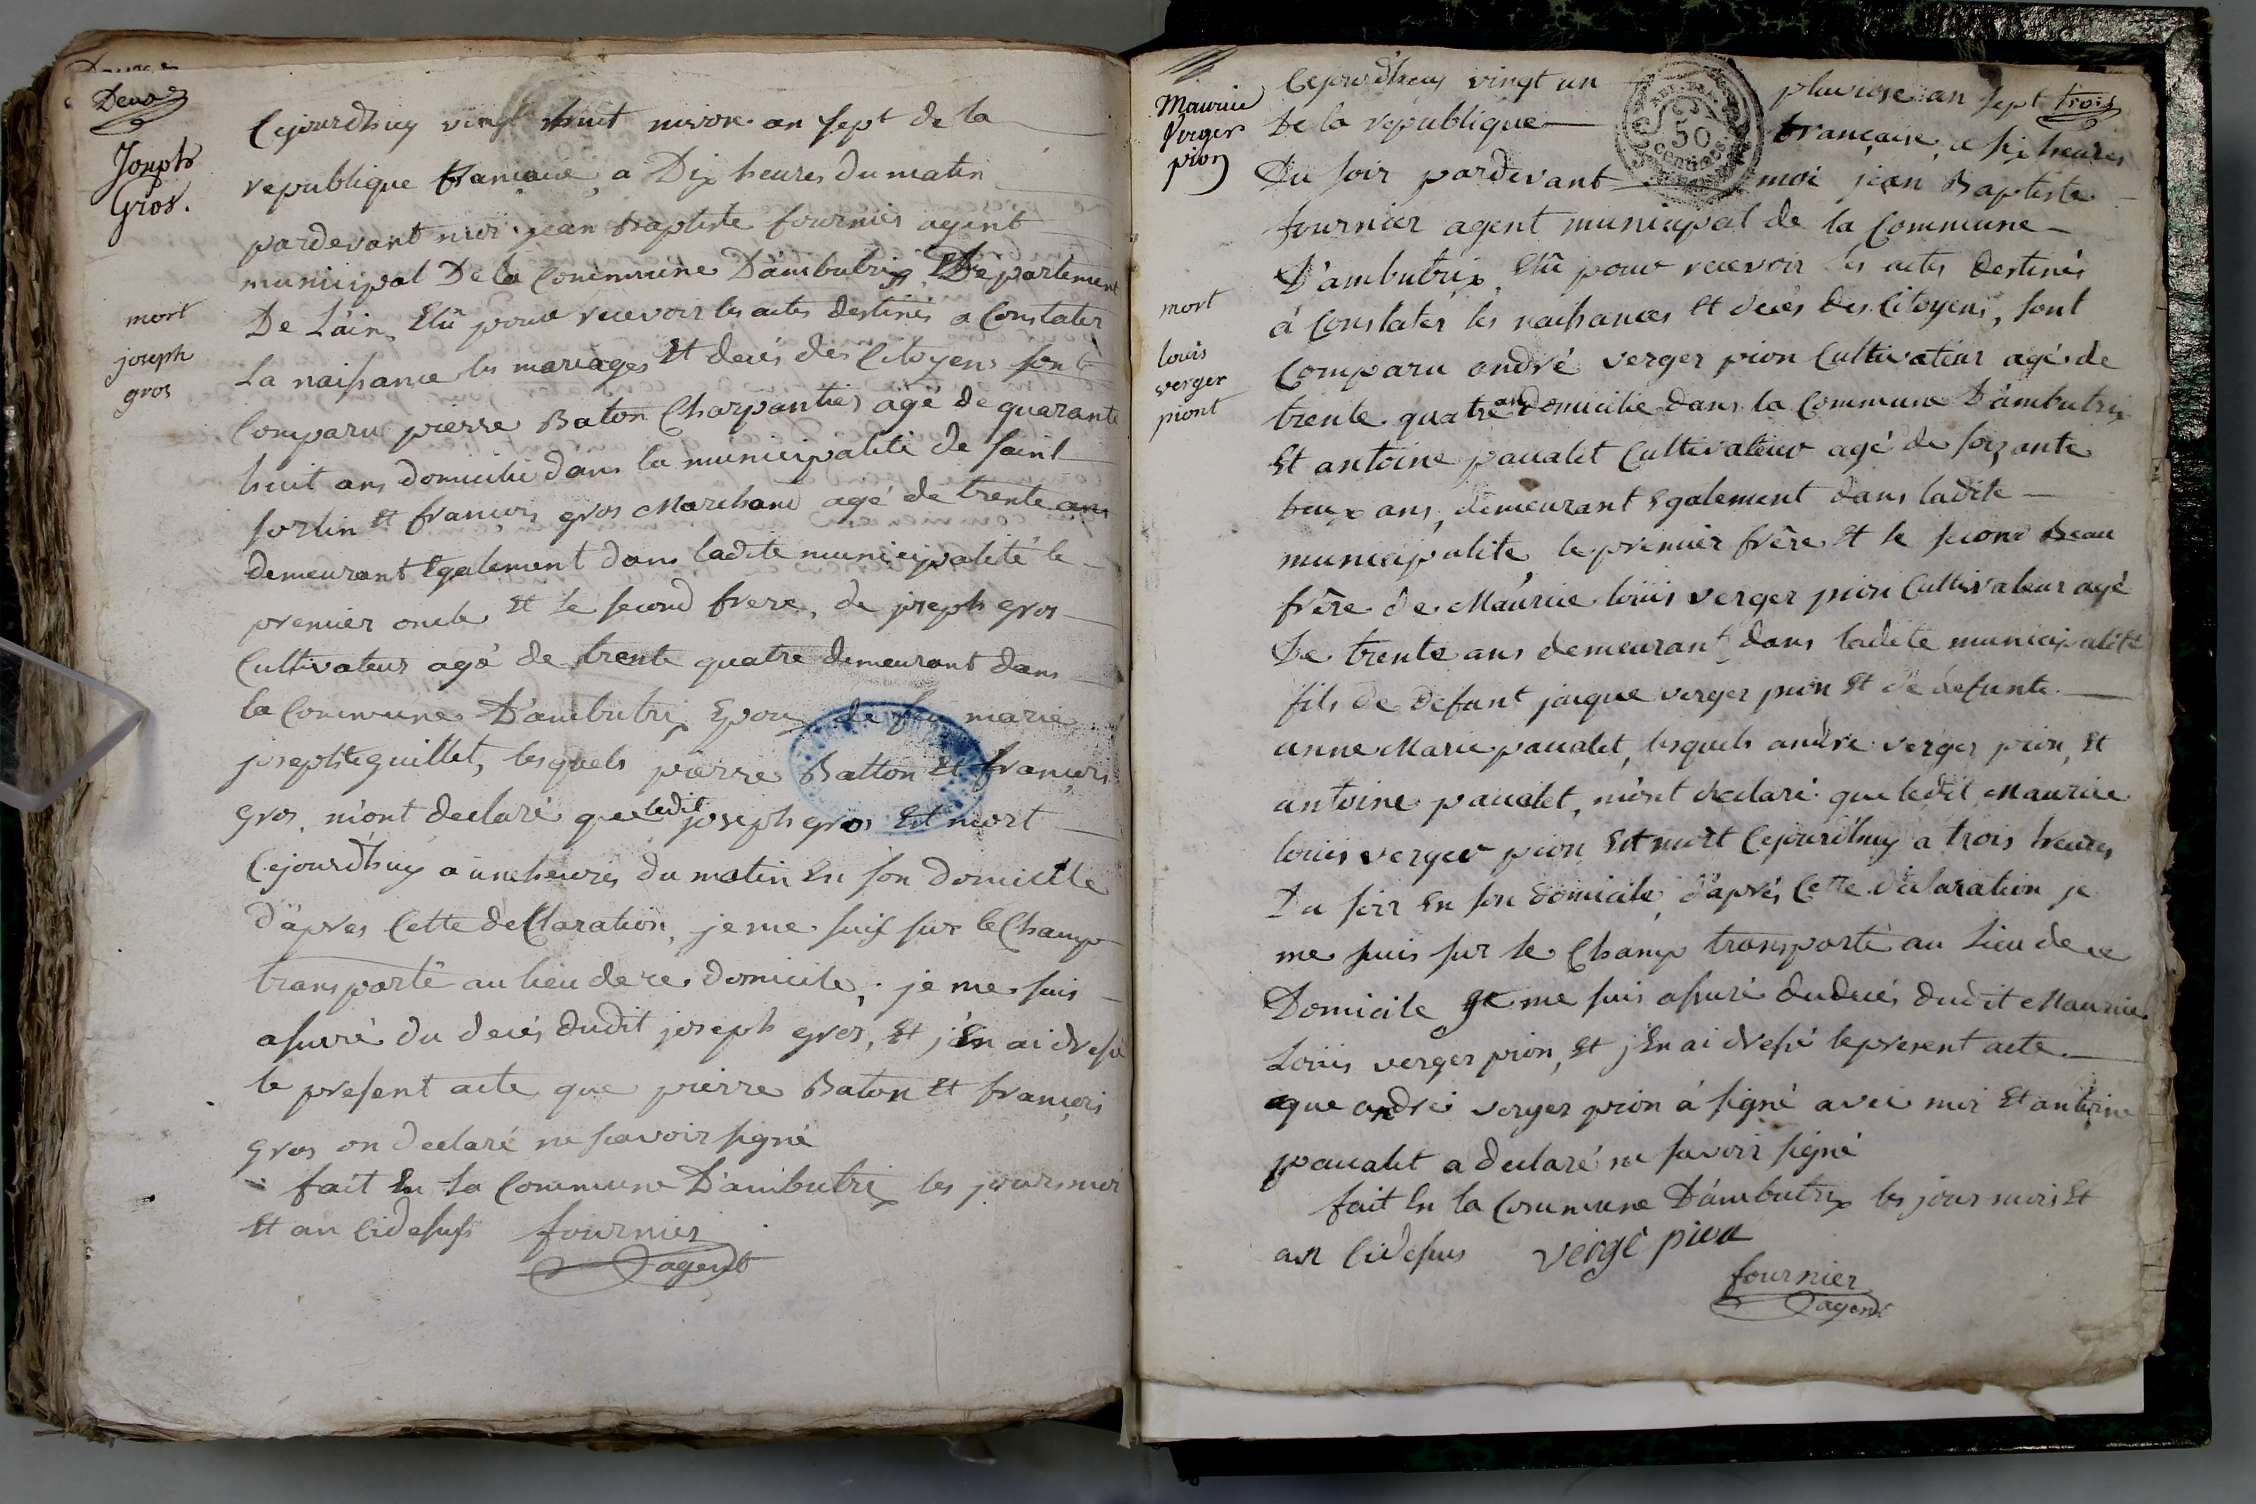 Deux
Joseph
Gros.
mort
joseph
gros
Cejourdhuy vingt huit nivose an sept de la
republique francaise, a Dix heures du matin
pardevant moi jean Baptiste fournier agent
municipal De la Commune D'ambutrix, Departement
De L'ain, Elû pour recevoir les actes destinés a Constater
La naissance les mariages Et decés des Citoyens sont
Comparu pierre Baton Charpantier agé de quarante
huit ans domicilié dans la municipalité de saint
sorlin Et françois gros Marchand agé de trente ans
demeurant Egalement dans ladite municipalité le
premier oncle Et le second frere, de joseph gros
Cultivateur agé de trente quatre demeurant dans
la Commune D'ambutrix Epoux de feu marie
josephte guillet, lesquels pierre Batton Et françois
gros, m'ont declaré que ledit joseph gros Est mort
Cejourd'huy a une heures du matin En son Domicille
d'apres Cette declaration, je me suis sur le Champ
transporté au lieu de ce domicile, je me suis
assuré du decés dudit joseph gros, Et j'En ai dressé
le present acte que pierre Baton Et françois
gros on declaré ne scavoir signé
fait En La Commune D'ambutrix les jours moi
Et an Cidessus fournier
agent
trois
Maurice
Verger
pion
mort
louis
verger
piont
Cejourdhuy vingt un pluviose an sept
De la republique française, a six heures
Du soir pardevant moi jean Baptiste
fournier agent municipal de la Commune
D'ambutrix, Elû pour recevoir les actes destinés
à Constater les naissances Et decés des Citoyens, sont
Comparu andré verger pion Cultivateur agé de
trente quatre an domicilié dans la Commune D'ambutrix
Et antoine paualet Cultivateur agé de soixante
deux ans, demeurant Egalement dans ladite
municipalité, le premier frère Et le second Beau
frère de Maurice louis verger pion Cultivateur agé
De trente ans demeurant dans ladite municipalité
fils de defunt jacque verger pion Et de defunte
anne Marie paualet, lesquels andré verger pion, Et
antoine paualet, m'ont declaré que ledit Maurice
louis verger pion Est mort Cejourd'huy a trois heures
Du soir En son domicile, d'aprés Cette declaration je
me suis sur le Champ transporté au Lieu de ce
Domicile je me suis assuré du decés dudit Maurice
Louis verger pion, Et j'En ai dressé le present acte
que andré verger pion a signé avec moi Et antoine
paualet a declaré ne savoir signé
fait En la Commune D'ambutrix les jour mois Et
an Cidessus vergé pion
fournier
agent
50